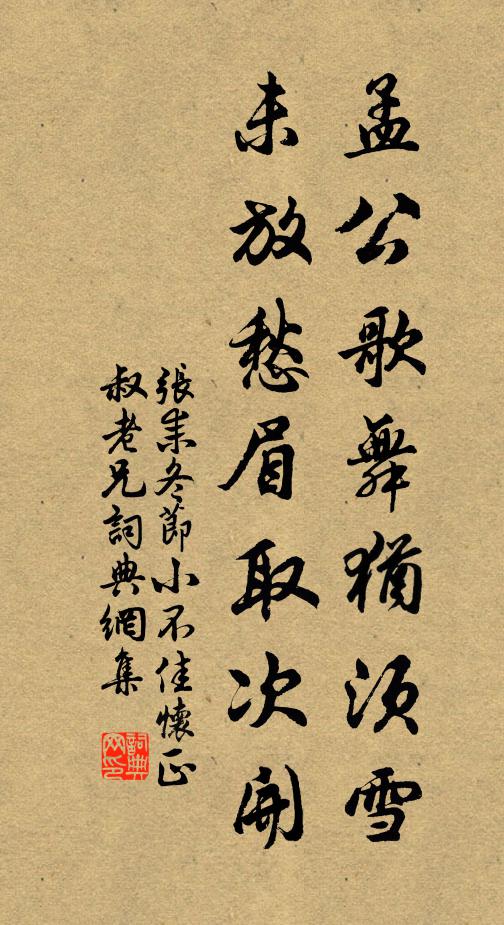 孟公歌舞猶須雪
未放愁眉取次開
張耒冬節小不佳懷正
叔老兄詞典網集
詞典網印